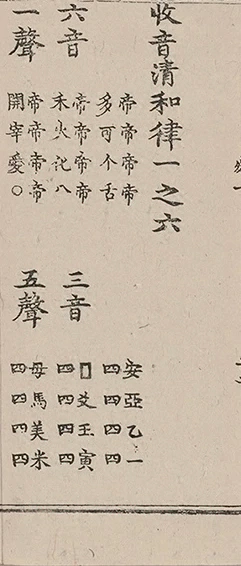 收音清和律一之六
帝帝帝帝
多可个舌
六音
帝帝帝帝
禾火化八
一聲
帝帝帝帝
開宰愛○
安亞乙一
四四四四
三音
□爻王寅
四四四四
五聲
母馬美米
四四四四